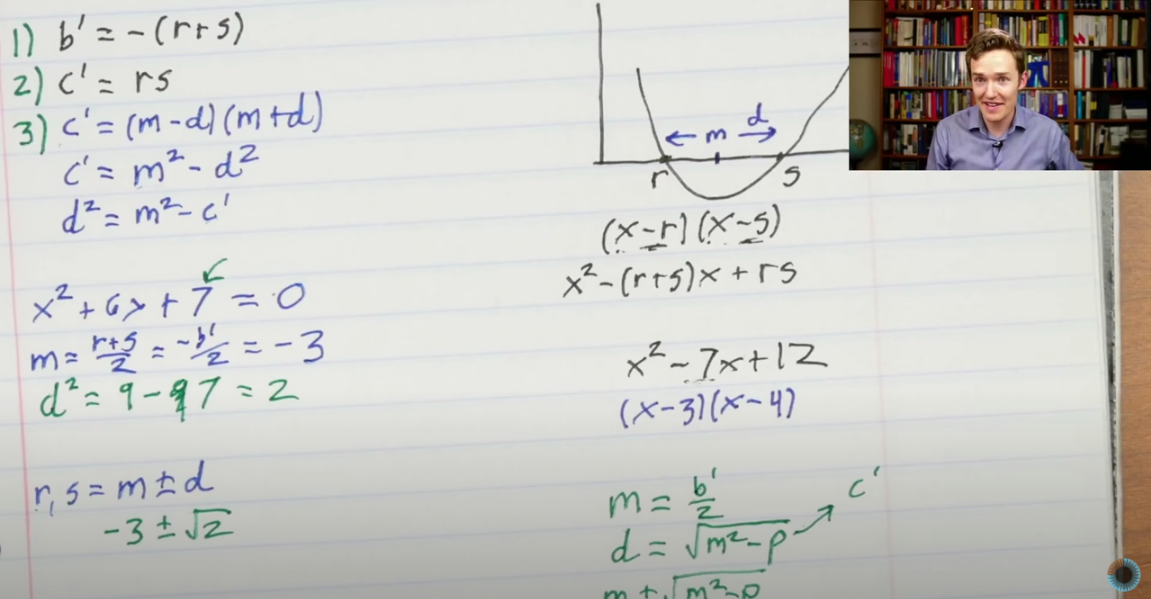 1) b' = -(r+s)
2) c' = rs
3) c' = (m-d)(m+d)
c' = m² - d²
d² = m² - c'
x² + 6x + 7 = 0
m = r+s/2 = -b'/2 = -3
d² = 9 - 7 = 2
r, s = m ± d
-3 ± √2
← m d →
r s
(x-r)(x-s)
x² - (r+s)x + rs
x² - 7x + 12
(x-3)(x-4)
m = b'/2
d = √m² - p → c'
m ± √m² - p